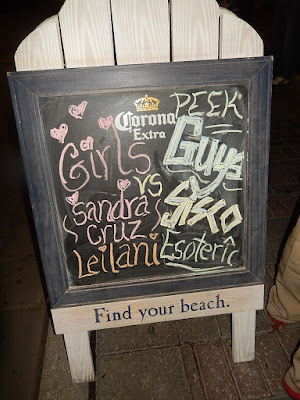 Corona
Extra
PEEK
Girls
Guys
vs
Sandra
Cruz
Sisco
Leilani
Esoteric
Find your beach.